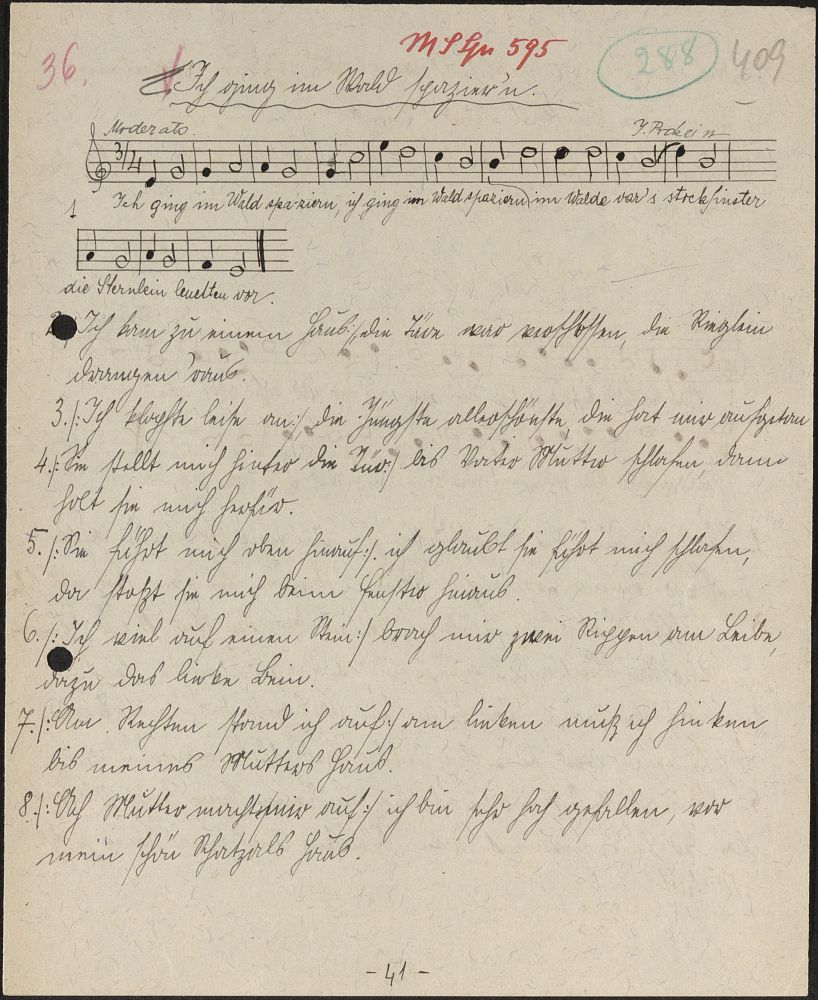 36.
288
409
Ich ging im Wald spazier'n.
Moderato.
3/4
1 Ich ging im Wald spaziern, ich ging im Wald spaziern, im Walde war's stockfinster
die Sternlein leuchten vor.
2. Ich kam zu einem Haus :/, die Türe war verschlossen, die Rieglein
drangen 'raus.
3. /: Ich klopfte leise an :/, die Jüngste allerschönste, die hat mir aufgetan
4. /: Sie stellt mich hinter die Tür :/ bis Vater Mutter schlafen, dann
holt sie mich herfür.
5. /: Sie führt mich oben hinauf :/. ich glaubt sie führt mich schlafen,
da stoßt sie mich beim Fenster hinaus.
6. /: Ich viel auf einen Stein :/ brach mir zwei Rippen am Leibe,
dazu das linke Bein.
7. /: Am Rechten stand ich auf :/ am linken muß ich hinken
bis meines Mutters Haus.
8. /: Ach Mutter macht mir auf :/ ich bin sehr hoch gefallen, vor
mein schön Schatzals Haus.
- 41 -